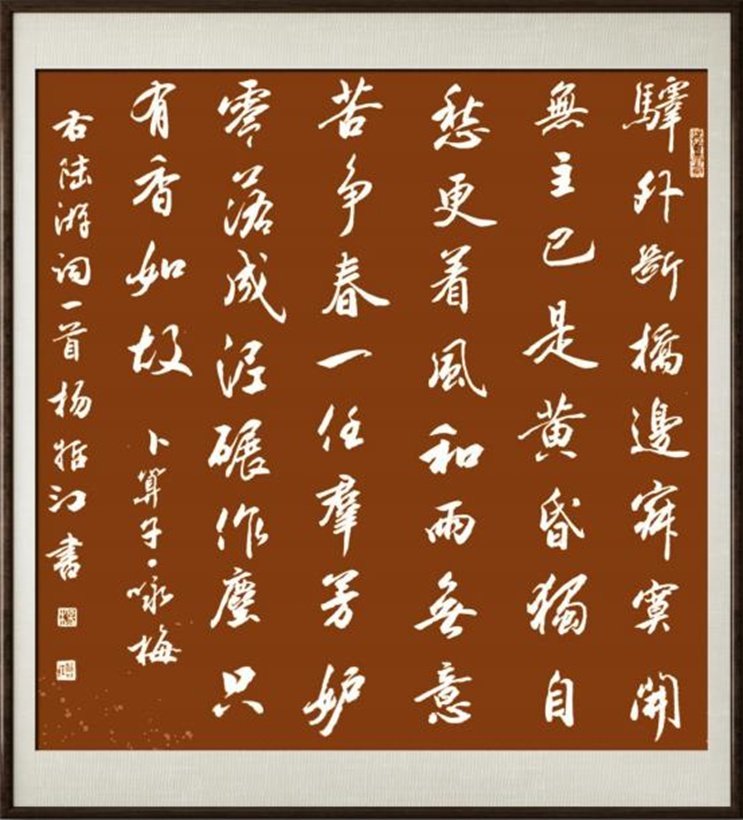 驛外斷橋邊寂寞開
無主已是黄昏獨自
愁更着風和雨無意
苦争春一任羣芳妒
零落成泥碾作塵只
有香如故 卜算子·咏梅
右陸游词一首杨江書